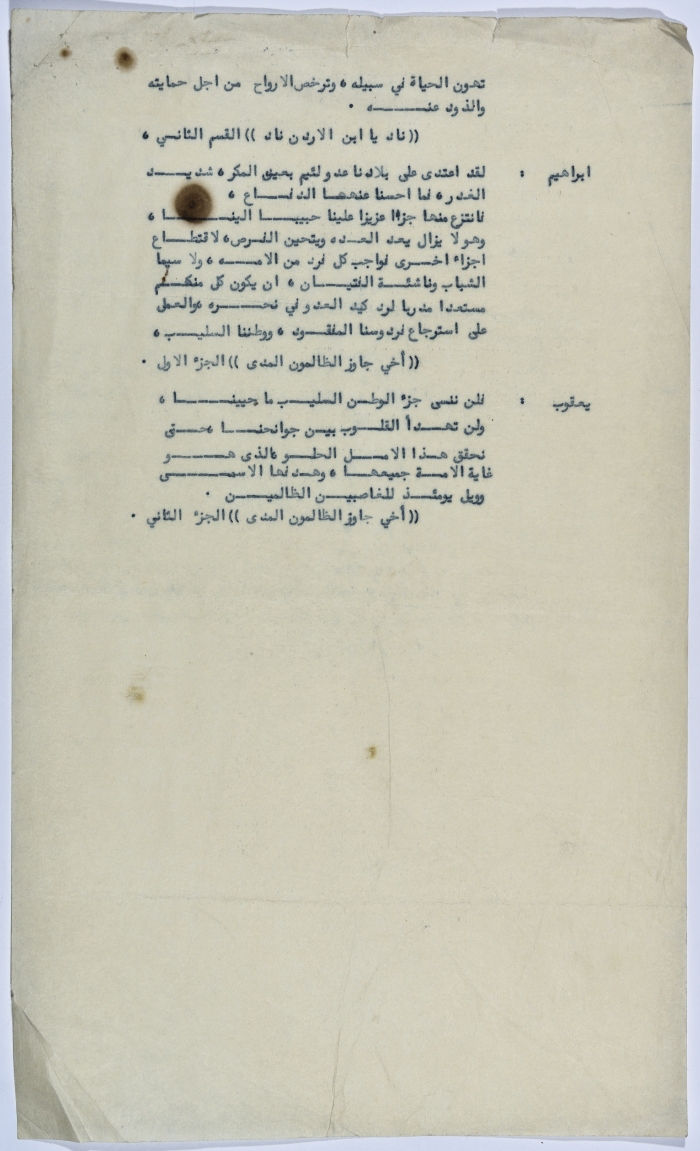 تهون الحياة في سبيله ، وترخص الارواح من اجل حمايته
والذود عنـــــــه .
(( ناد يا ابن الاردن ناد )) القسم الثانـي ،
ابراهيم : لقد اعتدى على بلادنا عدو لئيم بعيد المكر ، شديـــــد
الغدر ، فما احسنا عنهـا الدفـــاع ،
فانتزع منها جزءا عزيزا علينا حبيبـــا الينـــــا ،
وهو لا يزال يعد العـده ويتحين الفـرص ، لاقتطـــاع
اجزاء اخــرى فواجب كل فرد من الامـــه ، ولا سيما
الشباب وناشئــة الفتيــان ، ان يكون كل منهــم
مستعدا مدربا لرد كيد العدو في نحــــره ، والعمل
على استرجاع فردوسنا المفقـود ، ووطننا السليــب ،
(( أخي جاوز الظالمون المدى )) الجزء الاول .
يعقوب : فلن ننسى جزء الوطـن السليـب ما حيينـــا ،
ولن تهـدأ القلـوب بيـن جوانحنـا ، حـتى
نحقق هـذا الامــل الحلــو ، الذي هـــو
غاية الامــة جميعهـا ، وهـدفها الاسمــــى
وويل يومئـذ للغاصبيــن الظالميــــن .
(( أخي جاوز الظالمون المدى )) الجزء الثاني .